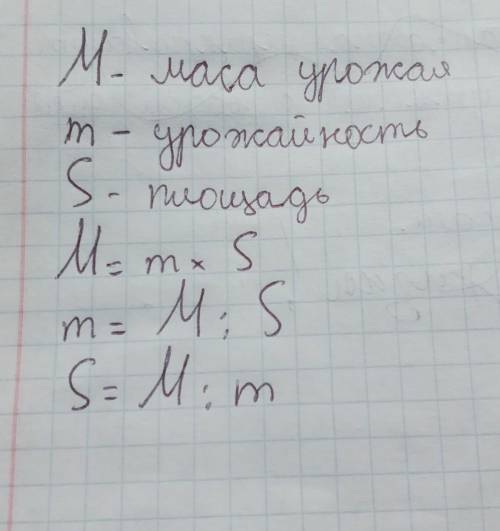 M - маса урожая
m - урожайность
S - площадь
M = m × S
m = M : S
S = M : m